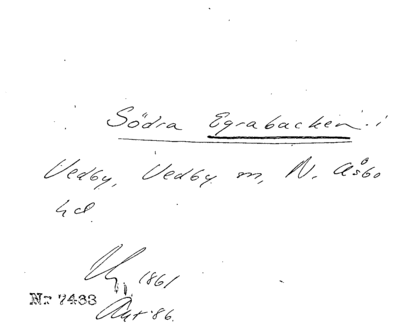 Södra Egrabacken i
Vedby, Vedby m, N. Åsbo
hd
1861
Nr 7433
86.